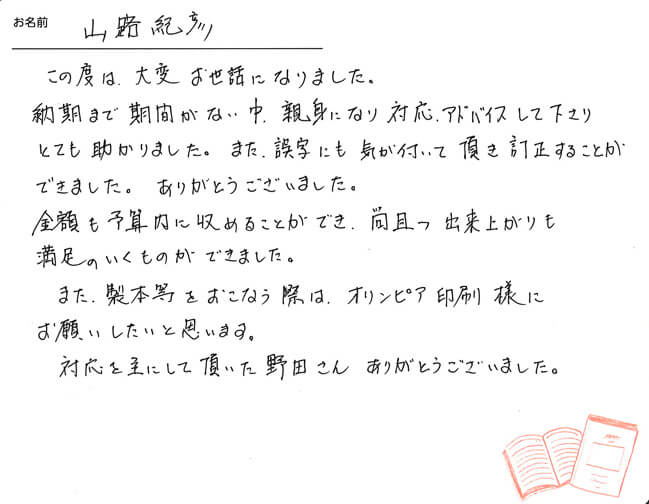 お名前 山路紀彦
この度は、大変お世話になりました。
納期まで期間がない中、親身になり対応、アドバイスして下さり
とても助かりました。また、誤字にも気が付いて頂き訂正することが
できました。ありがとうございました。
金額も予算内に収めることができ、尚且つ出来上がりも
満足のいくものができました。
また、製本等をおこなう際は、オリンピア印刷様に
お願いしたいと思います。
対応を主にして頂いた野田さんありがとうございました。